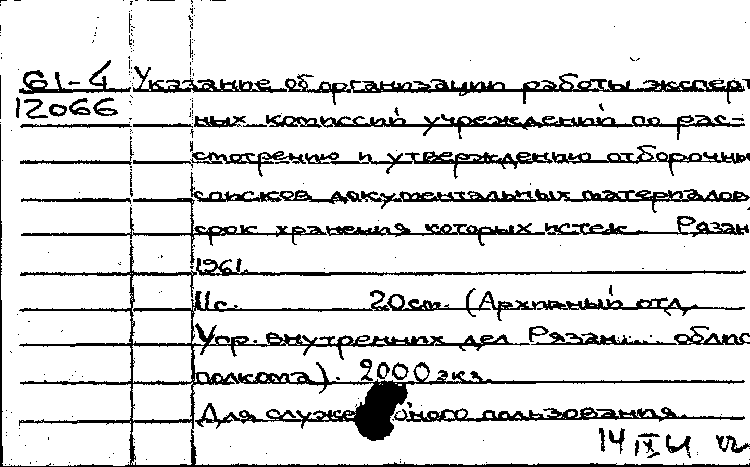 61-4 Указание об организации работы эксперт
12066 ных комиссий учреждений по рас=
смотрению и утверждению отборочны
списков документальных материалов,
срок хранения которых истек. Рязан
1961.
11с. 20см. (Архивный отд.
Упр. внутренних дел Рязан... облис
полкома). 2000 экз.
Для служебного пользования.
14 IX 61